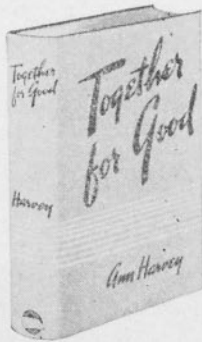 Together
for Good
Harvey
Together
for Good
Ann Harvey